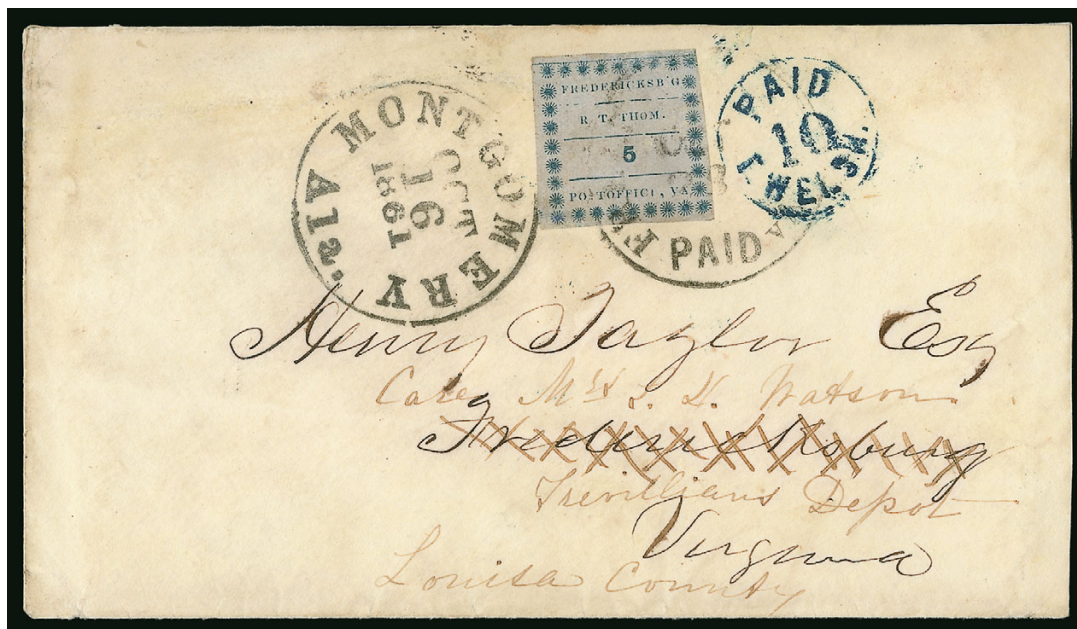 MONTGOMERY Ala.
OCT
16
1861
FREDERICKSB'G
R. T. THOM.
5
POSTOFFICE, VA
PAID
PAID
10
T. WELSH.
Henry Taylor Esq
Care Mrs S. D. Watson
Fredericksburg
Trevillians Depot
Virginia
Louisa County